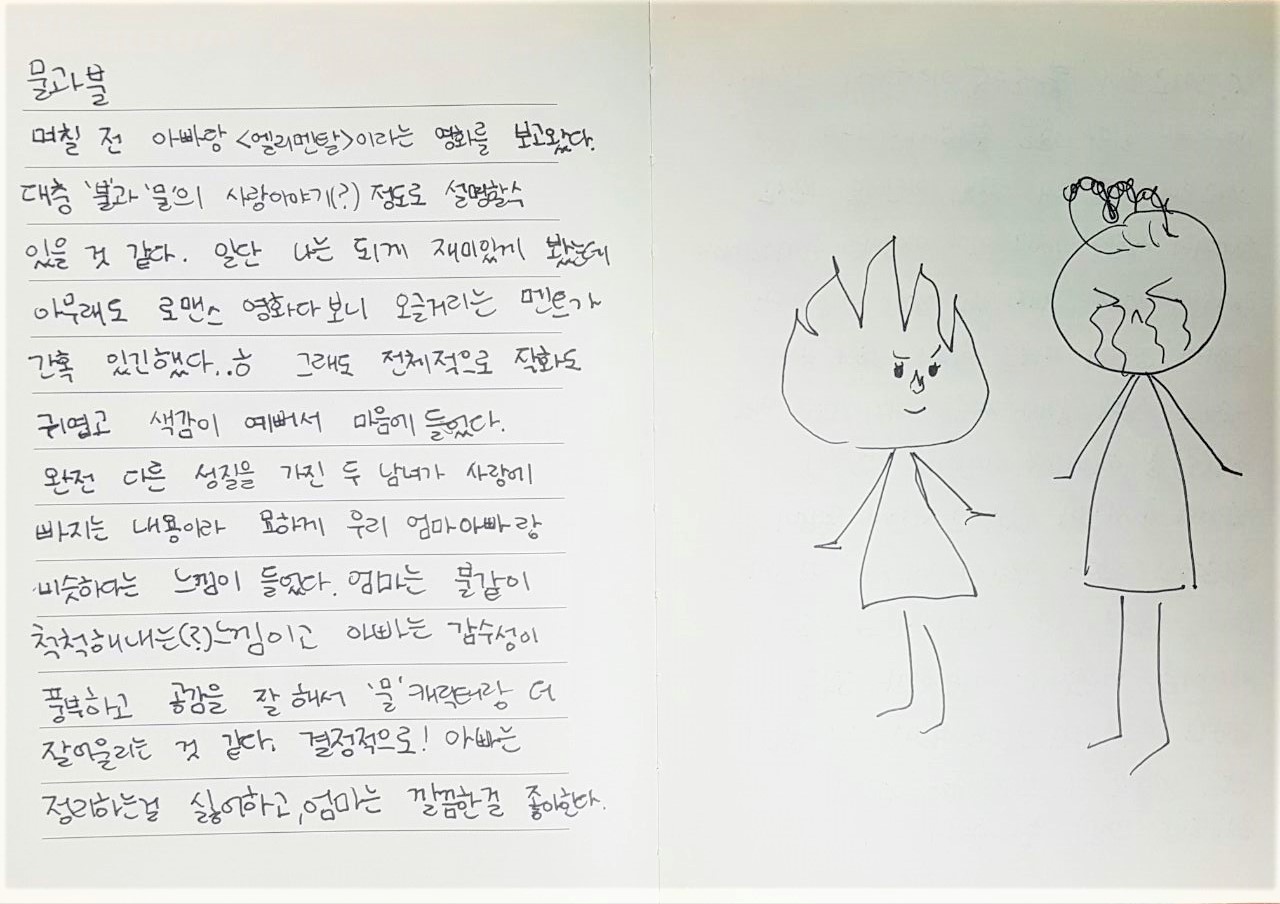 물과불
며칠 전 아빠랑 <엘리멘탈>이라는 영화를 보고왔다.
대충 '불'과 '물'의 사랑이야기(?) 정도로 설명할수
있을 것 같다. 일단 나는 되게 재미있게 봤는데
아무래도 로맨스 영화다보니 오글거리는 멘트가
간혹 있긴했다..ㅎ 그래도 전체적으로 작화도
귀엽고 색감이 예뻐서 마음에 들었다.
완전 다른 성질을 가진 두 남녀가 사랑에
빠지는 내용이라 묘하게 우리 엄마아빠랑
비슷하다는 느낌이 들었다. 엄마는 불같이
척척해내는(?)느낌이고 아빠는 감수성이
풍부하고 공감을 잘 해서 '물'캐릭터랑 더
잘어울리는 것 같다. 결정적으로! 아빠는
정리하는걸 싫어하고, 엄마는 깔끔한걸 좋아한다.